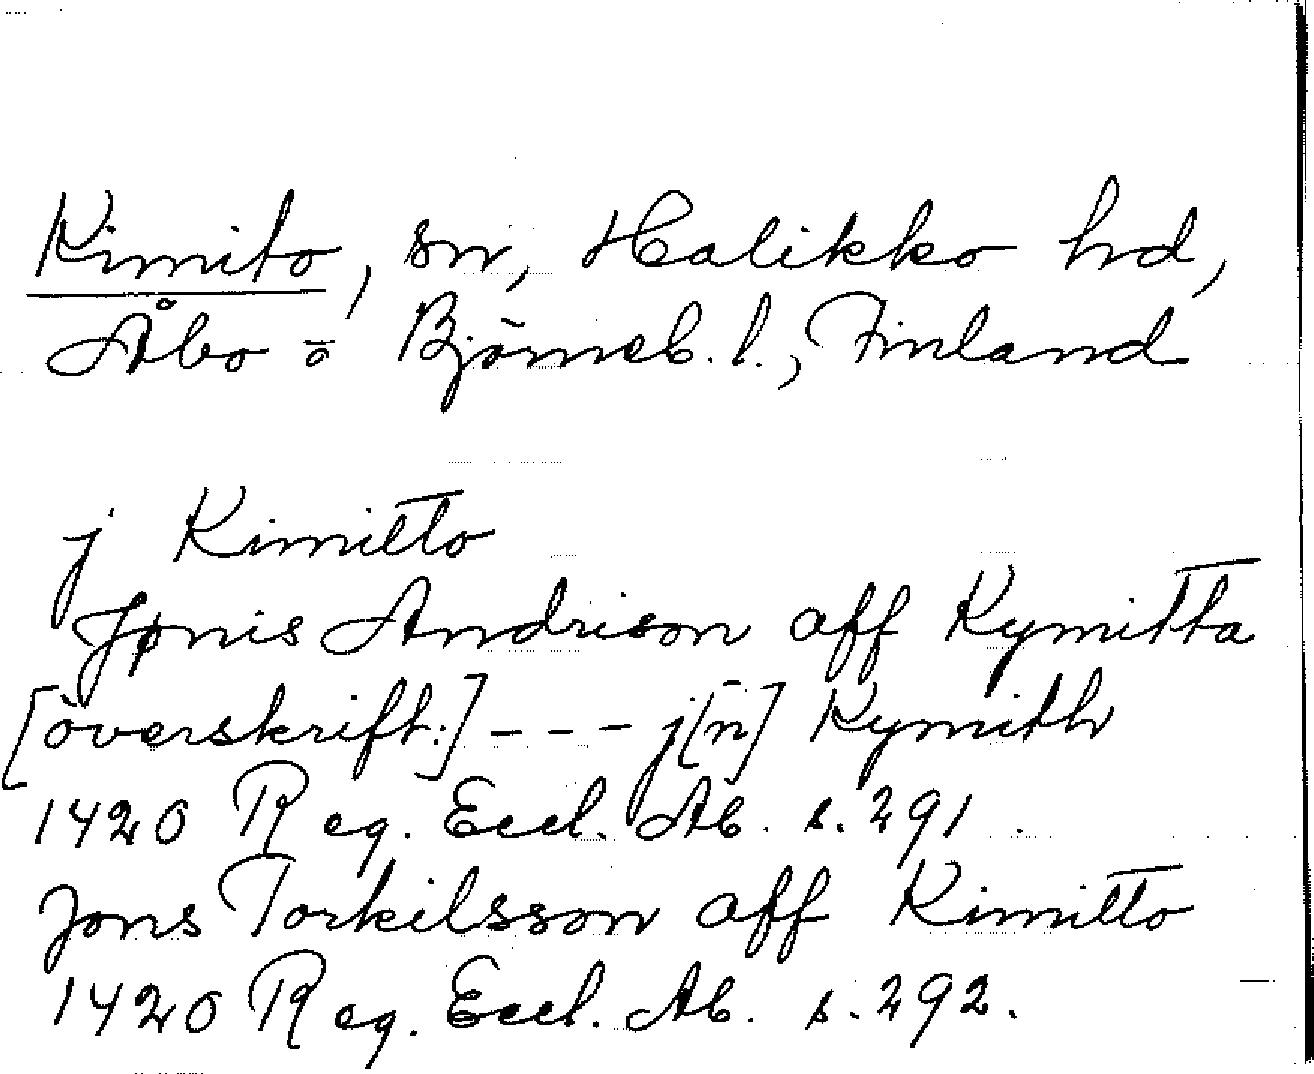 Kimito, sn, Halikko hd,
Åbo o Björneb. l., Finland
j Kimitto
Jønis Andrison aff Kymitta
[överskrift:] - - - j[n] Kymith
1420 Reg. Eccl. Ab. s. 291
Jons Torkilsson aff Kimitto
1420 Reg. Eccl. Ab. s. 292.